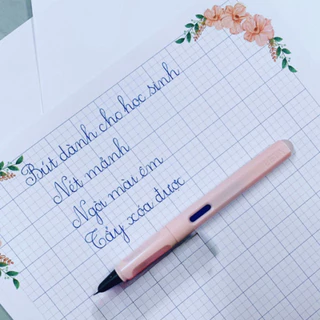 Bút dành cho học sinh
Nét mảnh
Ngòi mài êm
Tẩy xóa được